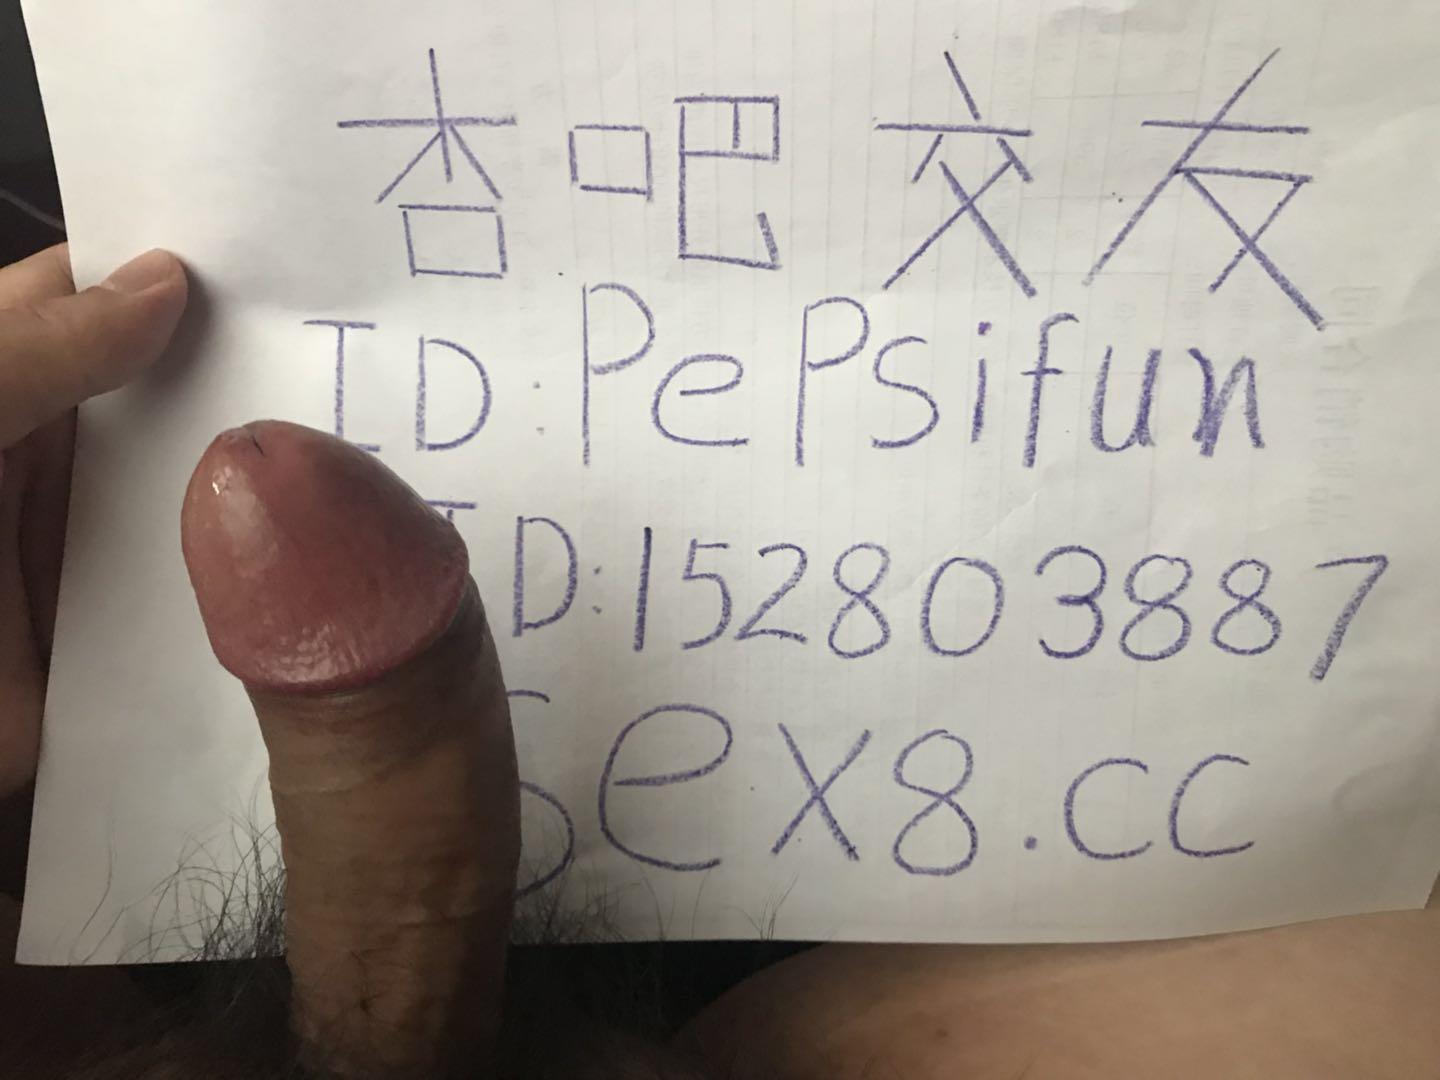 杏吧交友
ID:PePsifun
ID:152803887
Sex8.cc